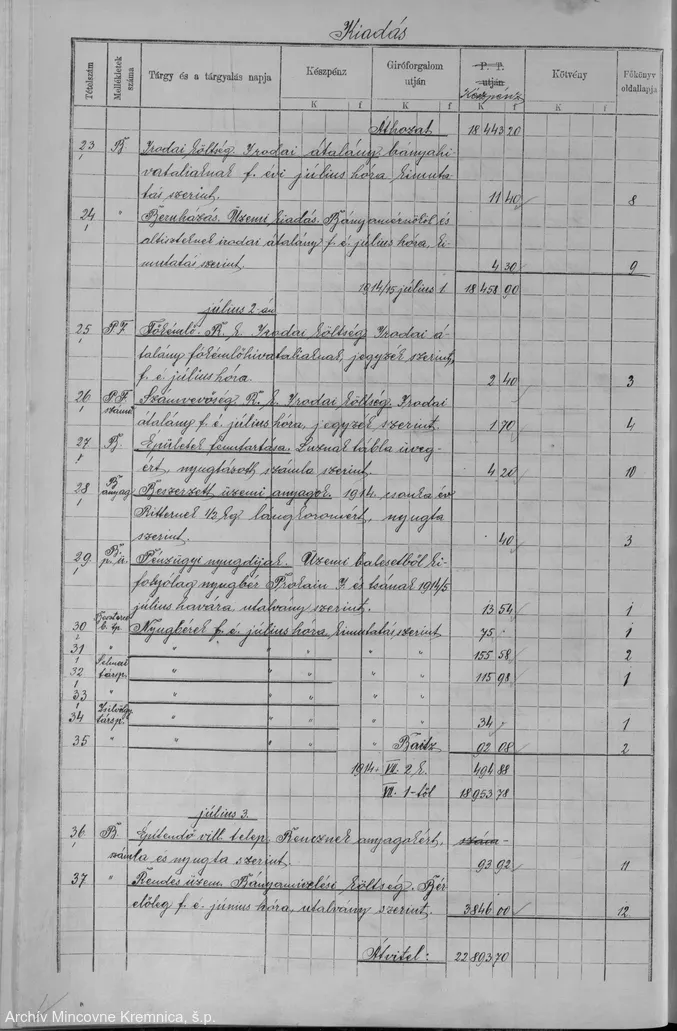 Kiadás
Tételszám
Mellékletek száma
Tárgy és a tárgyalás napja
Készpénz
Giróforgalom útján
P. T. útján
Készpénz
Kötvény
Főkönyv oldallapja
K f K f K f K f
Áthozat 18443 20
23 B. Irodai költség. Irodai átalány bányahi-
vataliaknak f. évi július hóra kimuta-
tás szerint. 11 40 8
24 " Bernházás. Üzemi kiadás. Bányamérnöki és
altiszteknek irodai átalány f. é. július hóra, ki-
mutatás szerint. 4 30 9
1914/15 július 1 18458 90
július 2-án
25 P.F. Főkémlő. B. k. Irodai költség Irodai á-
talány főkémlőhivataliaknak, jegyzék szerint,
f. é. július hóra. 2 40 3
26 P.F. Számvevőség B. k. Irodai költség. Irodai
átalány f. é. július hóra, jegyzék szerint. 1 70 4
27 B. Épületek fenntartása. Luznak tábla üveg-
ért, nyugtázott számla szerint. 4 20 10
28 B. anyag Beszerzett üzemi anyagok. 1914. csonka év
Ritternek 1/2 kg lángkoromért, nyugta
szerint. 40 3
29 B. p. ü. Pénzügyi nyugdíjak. Üzemi balesetből ki-
folyólag nyugbér Prokain J. és tsának 1914/5
július havára, utalvány szerint. 13 54 1
30 Nyugbérek f. é. július hóra, kimutatás szerint 75 . 1
31 " " " " " 155 58 2
32 társp. " " " " 115 98 1
33 " " " " "
34 társp. " " " " 34 . 1
35 " " " " 92 08 2
1914. VII. 2 k. 494 88
VII. 1-től 18953 78
július 3.
36 B. Építendő vill. telep. Rencznek anyagokért,
számla és nyugta szerint. 93 92 11
37 " Rendes üzem. Bányamívelési költség. Bér
előleg f. é. június hóra, utalvány szerint. 3846 00 12
Átvitel: 22893 70
Archív Mincovne Kremnica, š.p.